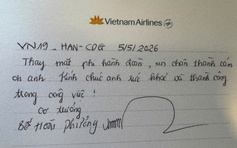 Vietnam Airlines
VN19 - HAN-CDG 5/5/2026
Thay mặt phi hành đoàn, xin chân thành cảm
ơn anh. Kính chúc anh sức khoẻ và thành công
trong công việc!
Cơ trưởng
Hoài Phương